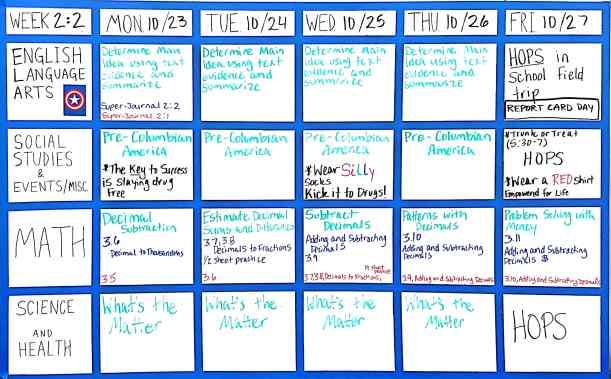 WEEK 2:2
MON 10/23
TUE 10/24
WED 10/25
THU 10/26
FRI 10/27
ENGLISH
LANGUAGE
ARTS
Determine Main
Idea using text
evidence and
summarize
Super-Journal 2:2
Super-Journal 2:1
Determine Main
Idea using text
evidence and
summarize
Determine Main
Idea using text
evidence and
summarize
Determine Main
Idea using text
evidence and
summarize
HOPS in
School field
trip
REPORT CARD DAY
SOCIAL
STUDIES
&
EVENTS/MISC.
Pre-Columbian
America
*The Key to Success
is staying drug
Free
Pre-Columbian
America
Pre-Columbian
America
*Wear Silly
Socks
Kick it to Drugs!
Pre-Columbian
America
*Trunk or Treat
(5:30-7)
HOPS
*Wear a RED shirt
Empowered for Life
MATH
Decimal
Subtraction
3.6
Decimal to Thousandths
3.5
Estimate Decimal
Sums and Differences
3.7, 3.8
Decimals to Fractions
1/2 sheet practice
3.6
Subtract
Decimals
Adding and Subtracting
Decimals
3.9
3.7, 3.8, Decimals to Fractions,
Patterns with
Decimals
3.10
Adding and Subtracting
Decimals
3.9, Adding and Subtracting Decimals
Problem Solving with
Money
3.11
Adding and Subtracting
Decimals $
3.10, Adding and Subtracting Decimals
SCIENCE
AND
HEALTH
What's the
Matter
What's the
Matter
What's the
Matter
What's the
Matter
HOPS